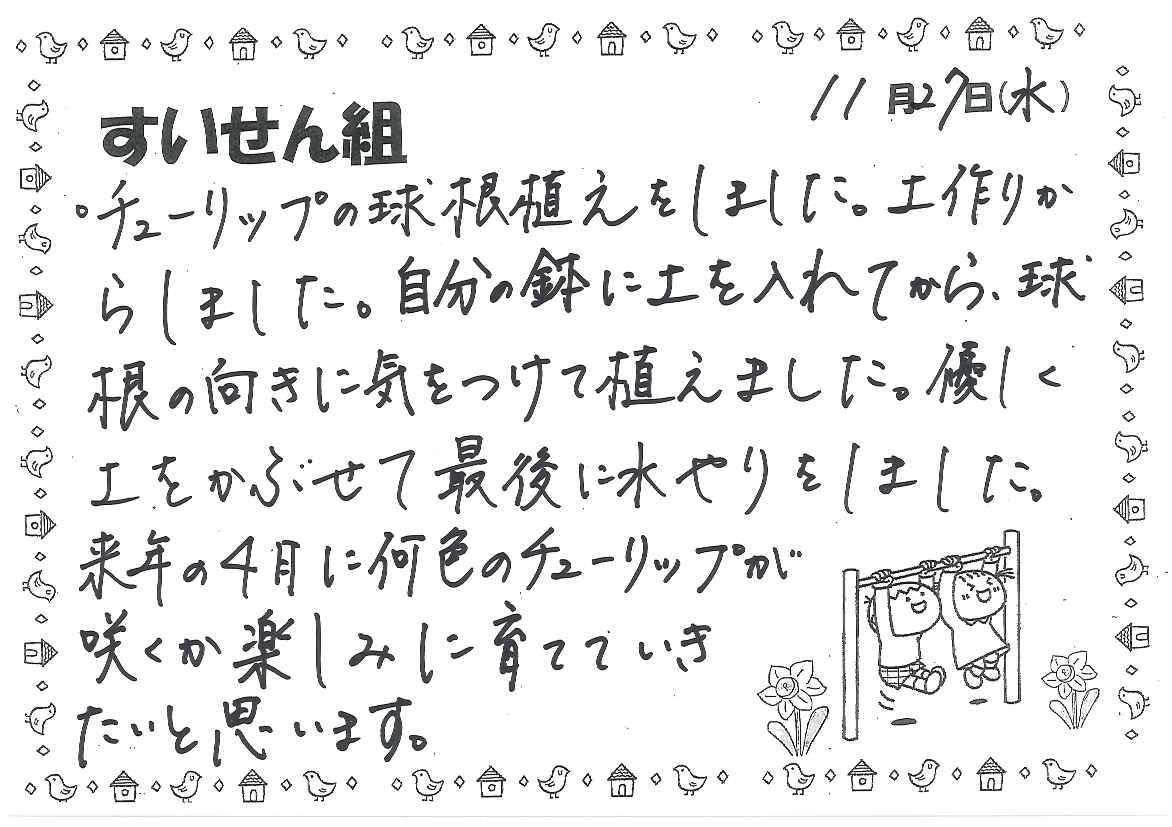 11月27日(水)
すいせん組
。チューリップの球根植えをしました。土作りか
らしました。自分の鉢に土を入れてから、球
根の向きに気をつけて植えました。優しく
土をかぶせて最後に水やりをしました。
来年の4月に何色のチューリップが
咲くか楽しみに育てていき
たいと思います。